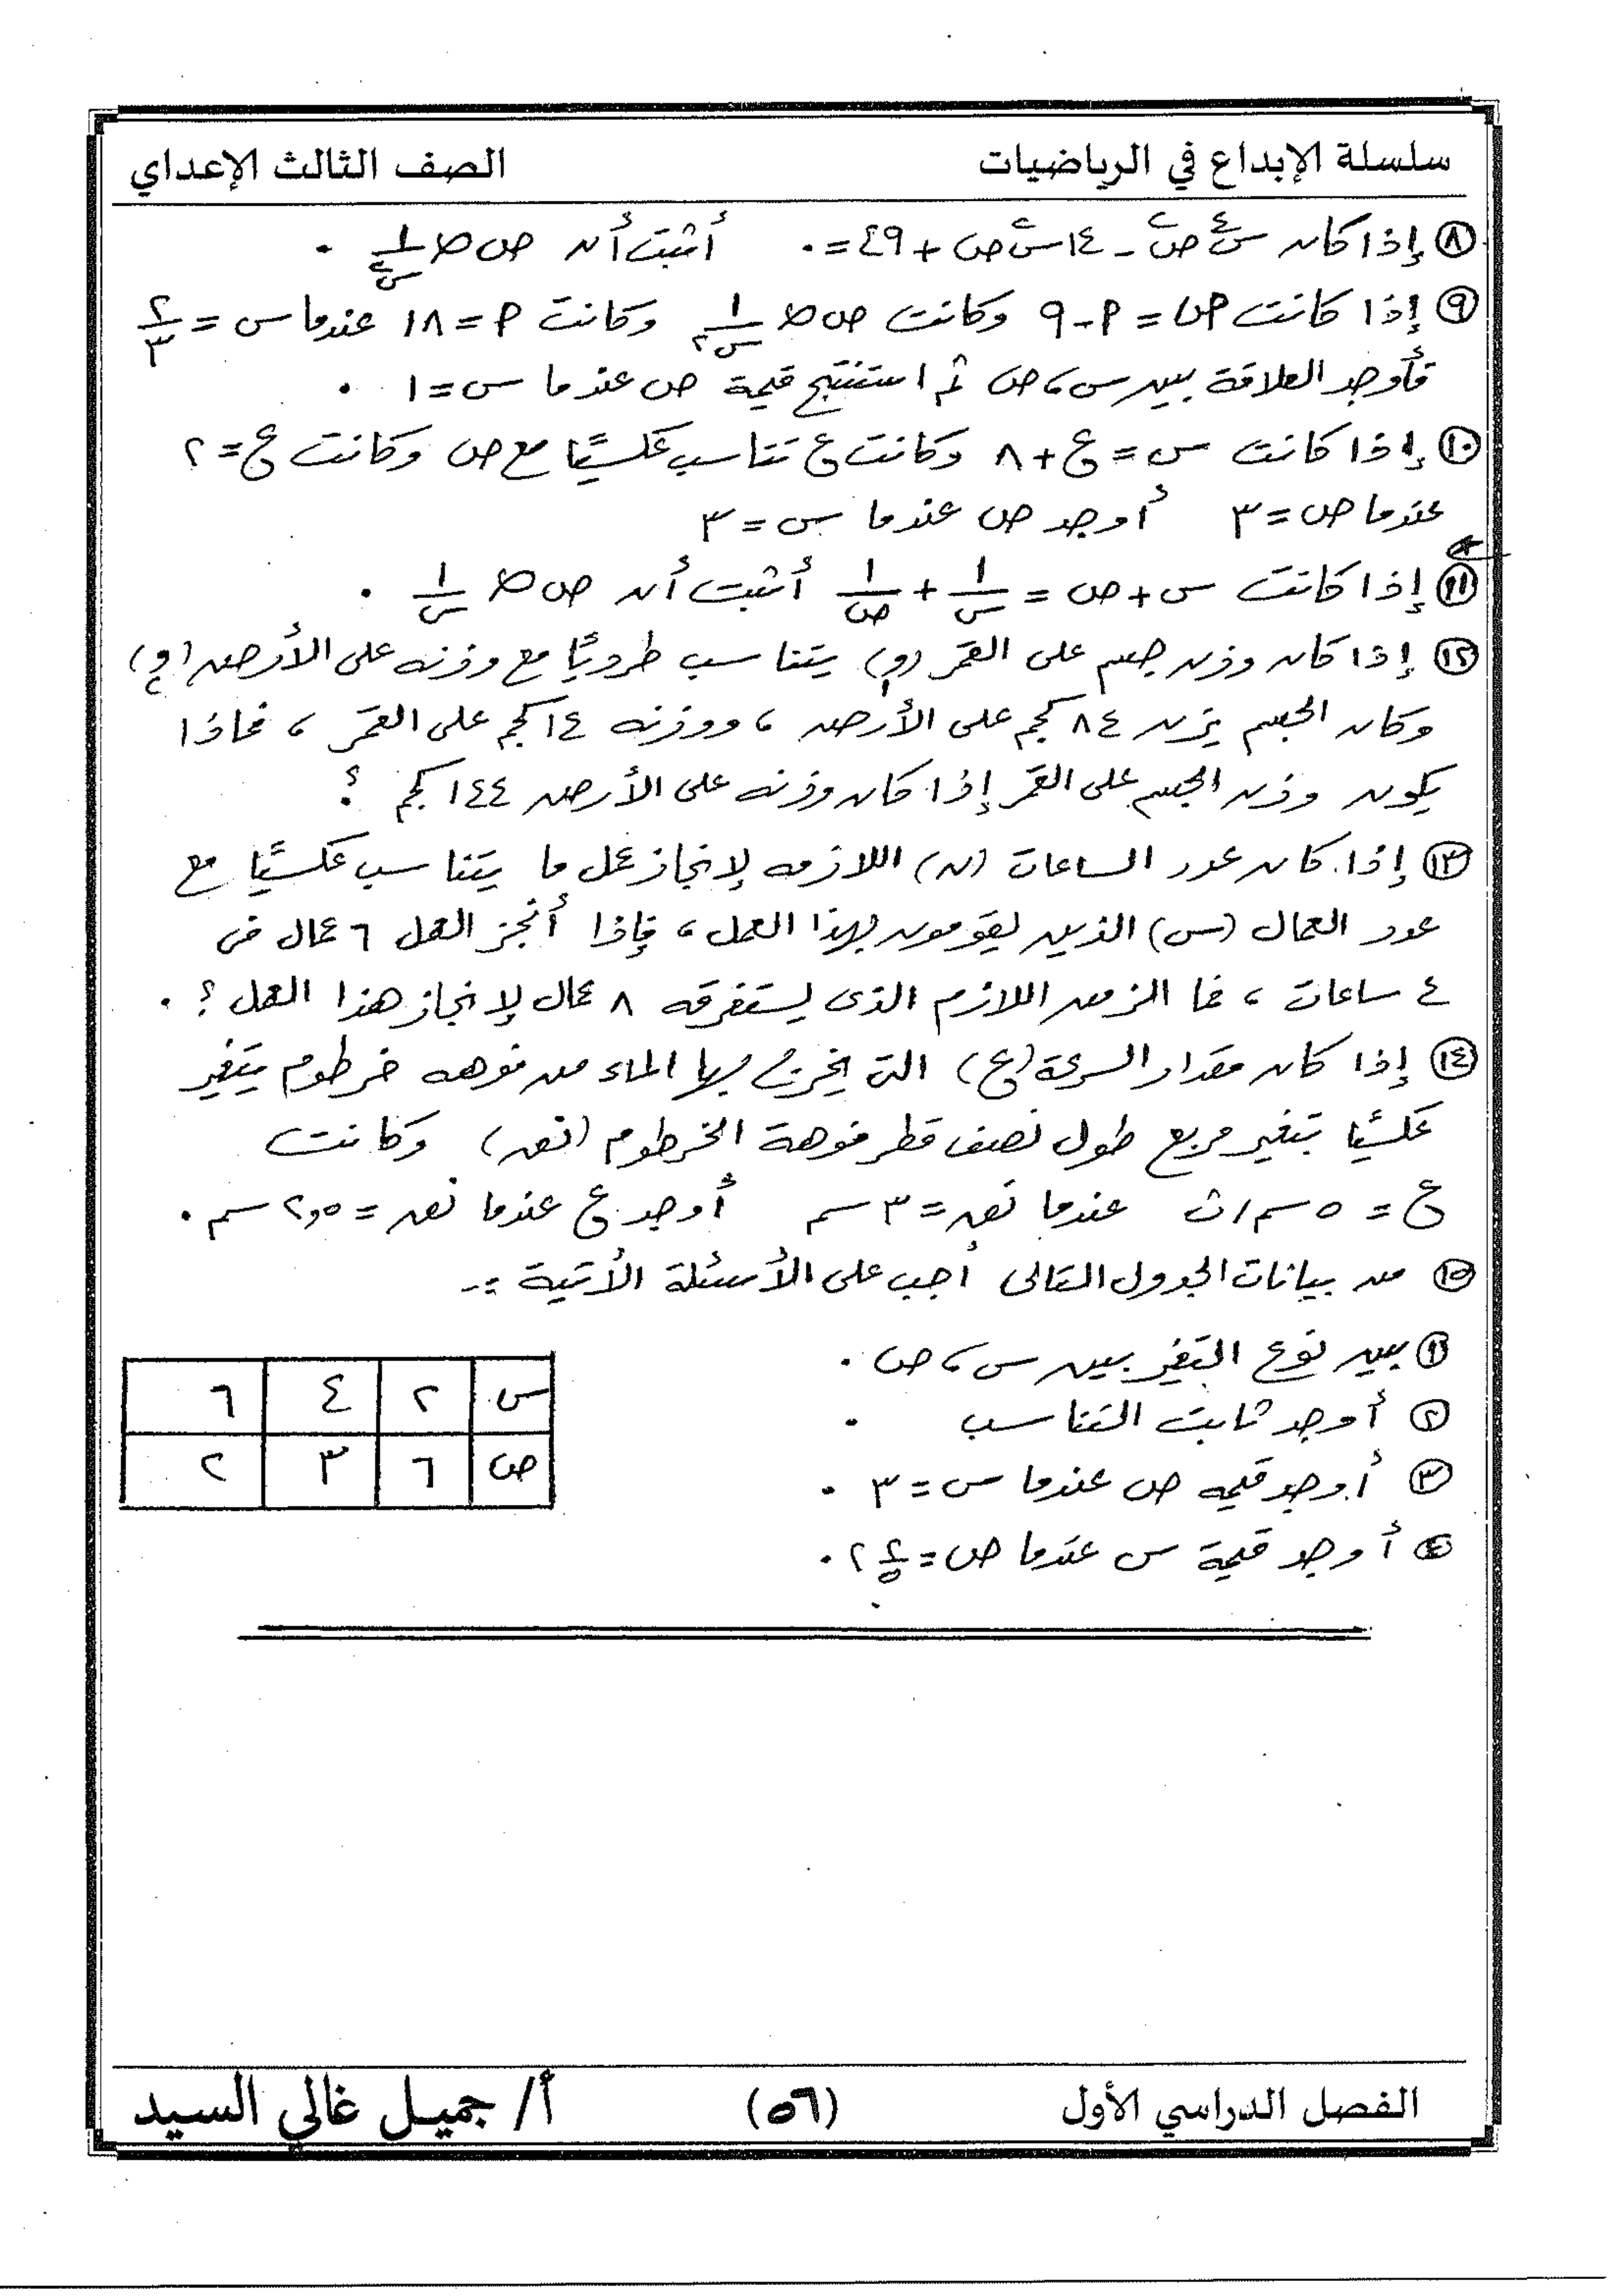 سلسلة الإبداع في الرياضيات
الصف الثالث الإعداي
٨ إذا كان س⁴ص² - ١٤س²ص + ٤٩ = ٠ أثبت أن ص ∝ ١/س²
٩ إذا كانت ص = ٩ - م وكانت ص ∝ ١/س² وكانت م = ١٨ عندما س = ٢/٣
فأوجد العلاقة بين س، ص ثم استنتج قيمة ص عندما س = ١ .
١٠ إذا كانت س = ع + ٨ وكانت ع تتناسب عكسيًا مع ص وكانت ع = ٢
عندما ص = ٣ أوجد ص عندما س = ٣
١١ إذا كانت س + ص = ١/س + ١/ص أثبت أن ص ∝ ١/س .
١٢ إذا كان وزن جسم على القمر (و١) يتناسب طرديًا مع وزنه على الأرض (و٢)
وكان الجسم يزن ٨٤ كجم على الأرض ، ووزنه ١٤ كجم على القمر ، فماذا
يكون وزن الجسم على القمر إذا كان وزنه على الأرض ١٤٤ كجم ؟
١٣ إذا كان عدد الساعات (ن) اللازمه لإنجاز عمل ما يتناسب عكسيًا مع
عدد العمال (س) الذين يقومون بهذا العمل ، فإذا أنجز العمل ٦ عمال فى
٤ ساعات ، فما الزمن اللازم الذى يستغرقه ٨ عمال لإنجاز هذا العمل ؟ .
١٤ إذا كان مقدار السرعة (ع) التى يخرج بها الماء من فوهه خرطوم يتغير
عكسيًا بتغير مربع طول نصف قطر فوهة الخرطوم (نق) وكانت
ع = ٥ سم/ث عندما نق = ٣ سم أوجد ع عندما نق = ٢,٥ سم .
١٥ من بيانات الجدول التالى أجب على الأسئلة الأتية :-
١ بين نوع التغير بين س ، ص .
٢ أوجد ثابت التناسب .
٣ أوجد قيمه ص عندما س = ٣ .
٤ أوجد قيمة س عندما ص = ٢ ٢/٥ .
س ٢ ٤ ٦
ص ٦ ٣ ٢
الفصل الدراسي الأول
(٥٦)
أ/ جميل غالي السيد